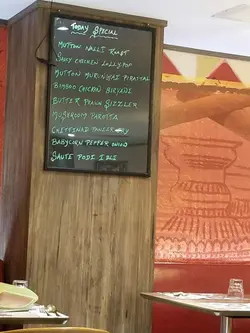 Today Special
Mutton Nalli Roast
Saucy Chicken Lollypop
Mutton Murungkai Pirattal
Bamboo Chicken Biryani
Butter Prawn Sizzler
Mushroom Parotta
Chettinad
Babycorn Pepper
Saute Podi Idli